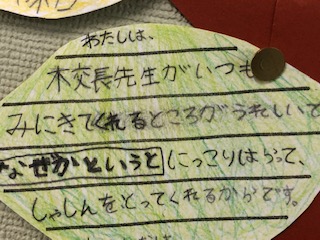 わたしは、
校長先生がいつも
みにきてくれるところがうれしいで
なぜかというとにっこりはらって、
しゃしんをとってくれるからです。